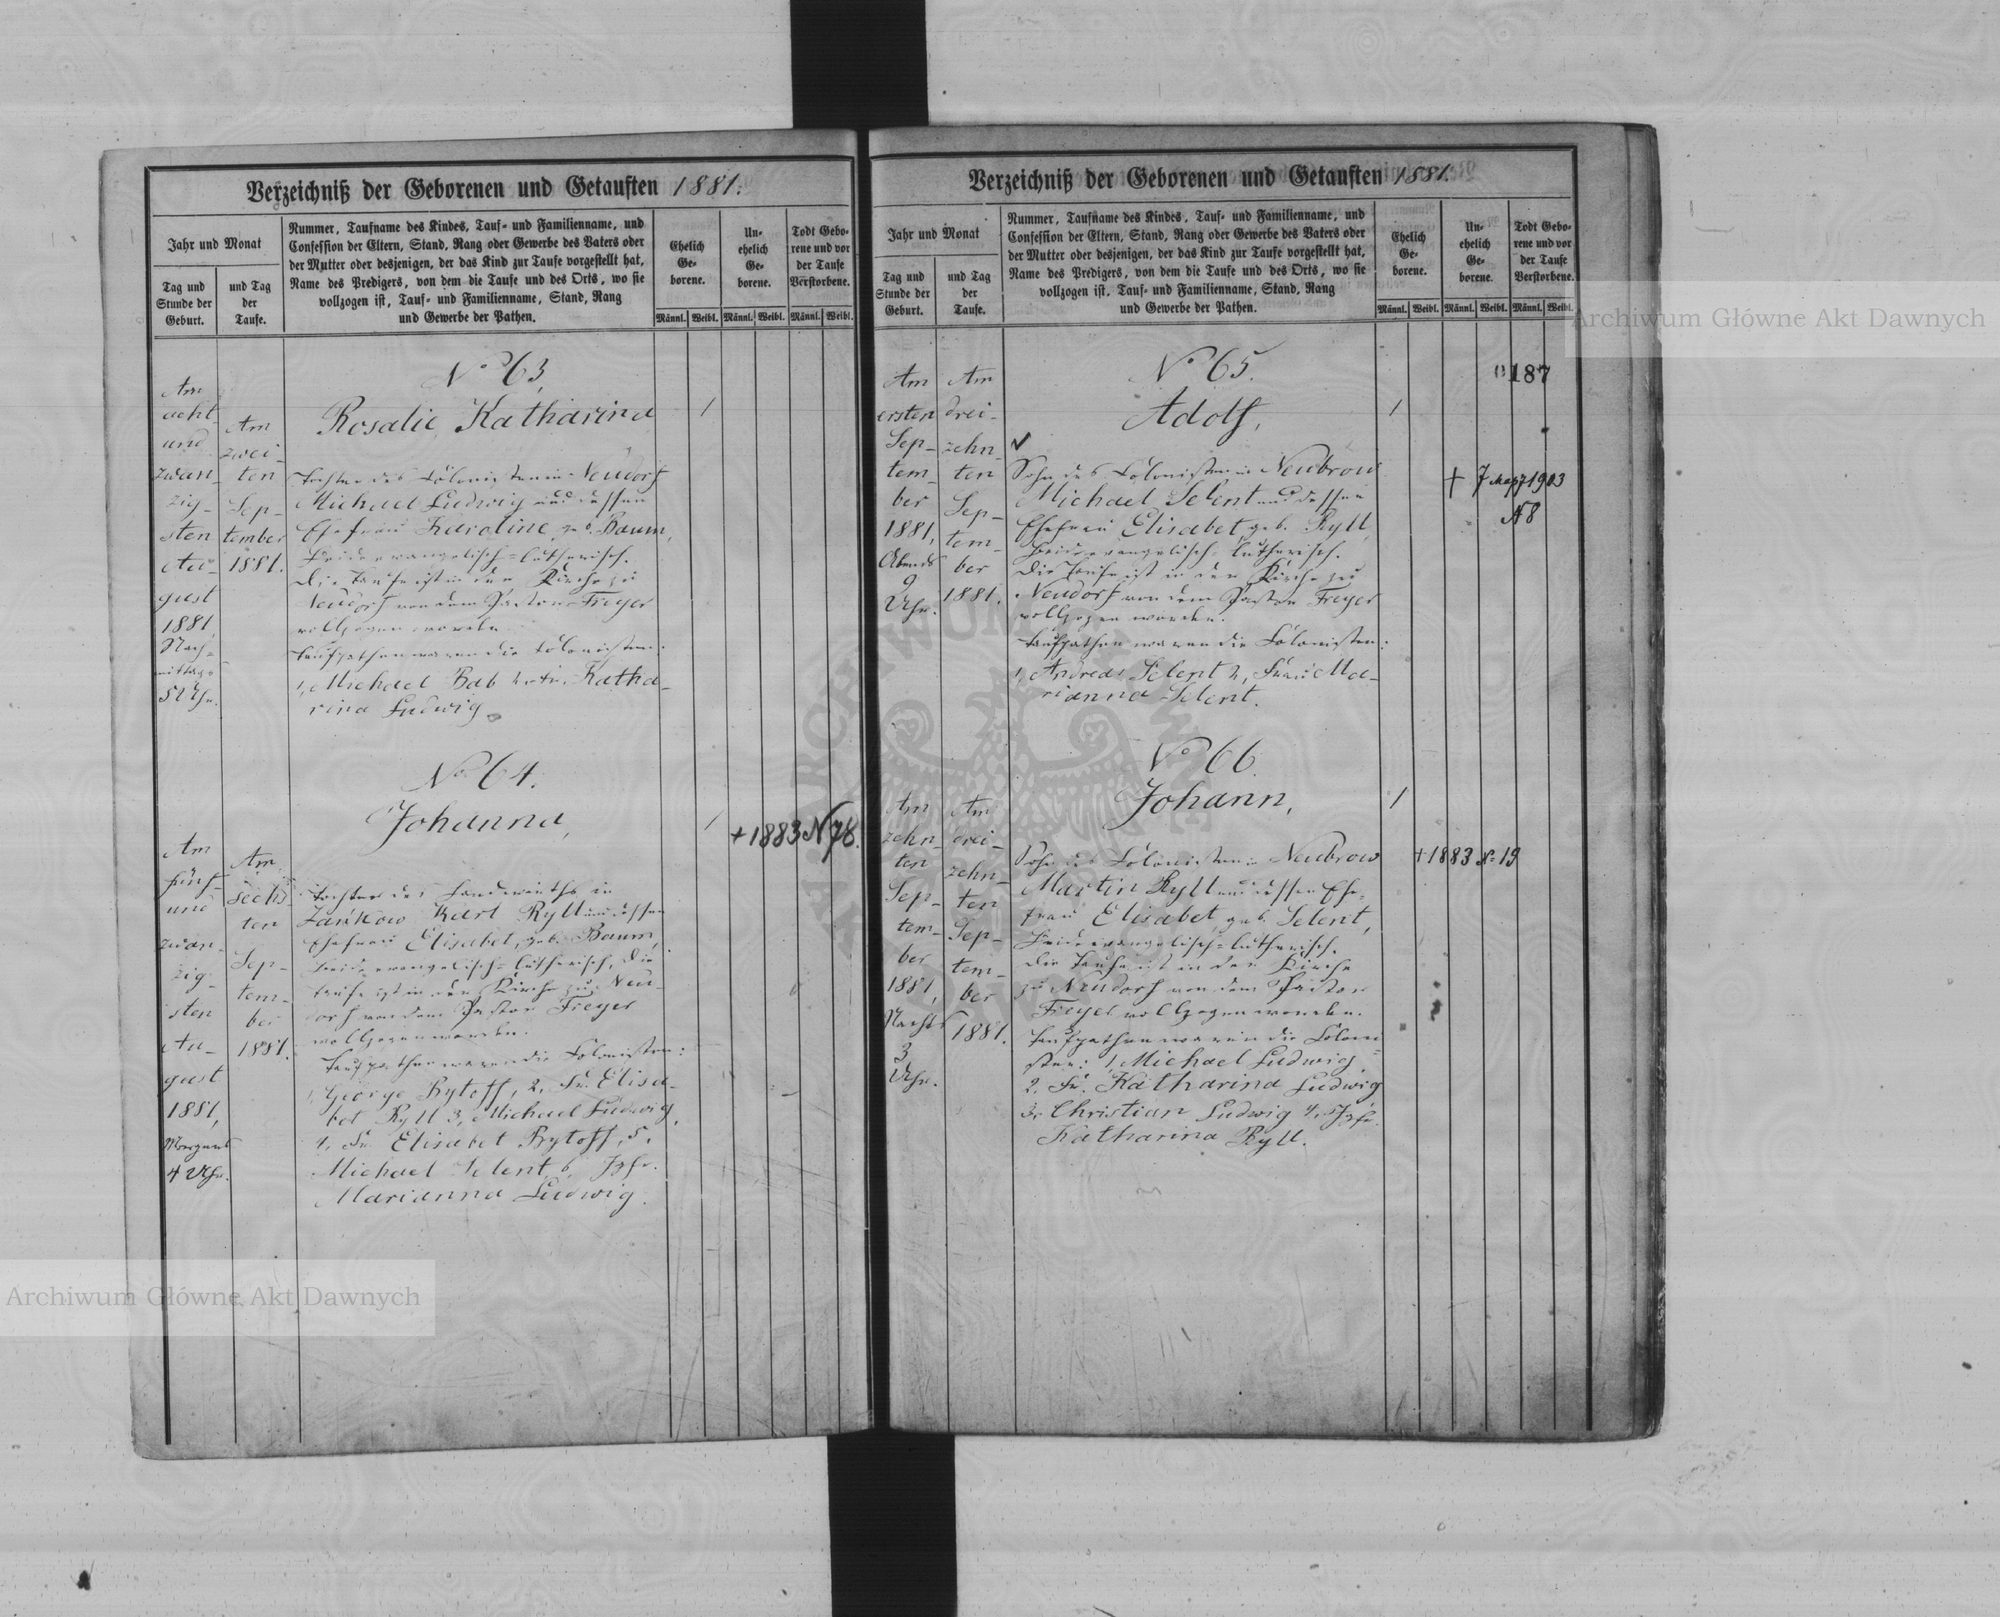 Verzeichniß der Geborenen und Getauften 1881.
Jahr und Monat
Tag und
Stunde der
Geburt.
und Tag
der
Taufe.
Nummer, Taufname des Kindes, Tauf- und Familienname, und
Confession der Eltern, Stand, Rang oder Gewerbe des Vaters oder
der Mutter oder desjenigen, der das Kind zur Taufe vorgestellt hat,
Name des Predigers, von dem die Taufe und des Orts, wo sie
vollzogen ist, Tauf- und Familienname, Stand, Rang
und Gewerbe der Pathen.
Ehelich
Ge-
borene.
Un-
ehelich
Ge-
borene.
Todt Gebo-
rene und vor
der Taufe
Verstorbene.
Männl. Weibl. Männl. Weibl. Männl. Weibl.
Am
acht-
und
zwan-
zig-
sten
Au-
gust
1881,
Nach-
mittags
5 Uhr.
Am
zwei-
ten
Sep-
tember
1881.
No 63,
Rosalie Katharina
1
Tochter des Colonisten in Neudorf
Michael Ludwig und dessen
Ehefrau Karoline, geb. Baum,
beide evangelisch-lutherisch.
Die Taufe ist in der Kirche zu
Neudorf von dem Pastor Freyer
vollzogen worden.
Taufpathen waren die Colonisten:
1, Michael Bab 2, Fr. Katha-
rina Ludwig.
Am
fünf-
und
zwan-
zig-
sten
Au-
gust
1881,
Morgens
4 Uhr.
Am
sechs-
ten
Sep-
tem-
ber
1881.
No 64.
Johanna,
1
+ 1883 N 78.
Tochter des Landwirths in
Zankow Karl Ryll und dessen
Ehefrau Elisabet, geb. Baum,
beide evangelisch-lutherisch. Die
Taufe ist in der Kirche zu Neu-
dorf von dem Pastor Freyer
vollzogen worden.
Taufpathen waren die Colonisten:
1, George Rytoff, 2, Fr. Elisa-
bet Ryll 3, Michael Ludwig,
4, Fr. Elisabet Rytoff, 5,
Michael Selent, 6, Jgfr.
Marianna Ludwig.
Verzeichniß der Geborenen und Getauften 1881.
Jahr und Monat
Tag und
Stunde der
Geburt.
und Tag
der
Taufe.
Nummer, Taufname des Kindes, Tauf- und Familienname, und
Confession der Eltern, Stand, Rang oder Gewerbe des Vaters oder
der Mutter oder desjenigen, der das Kind zur Taufe vorgestellt hat,
Name des Predigers, von dem die Taufe und des Orts, wo sie
vollzogen ist, Tauf- und Familienname, Stand, Rang
und Gewerbe der Pathen.
Ehelich
Ge-
borene.
Un-
ehelich
Ge-
borene.
Todt Gebo-
rene und vor
der Taufe
Verstorbene.
Männl. Weibl. Männl. Weibl. Männl. Weibl.
187
Am
ersten
Sep-
tem-
ber
1881,
Abends
9
Uhr.
Am
drei-
zehn-
ten
Sep-
tem-
ber
1881.
No 65.
Adolf,
1
Sohn des Colonisten in Neubrow
Michael Selent und dessen
Ehefrau Elisabet, geb. Ryll,
beide evangelisch-lutherisch.
Die Taufe ist in der Kirche zu
Neudorf von dem Pastor Freyer
vollzogen worden.
Taufpathen waren die Colonisten:
1, Andreas Selent 2, Frau Ma-
rianna Selent.
+ 7 1903
N 8
Am
zehn-
ten
Sep-
tem-
ber
1881,
Nachts
3
Uhr.
Am
drei-
zehn-
ten
Sep-
tem-
ber
1881.
No 66.
Johann,
1
+ 1883 No 19
Sohn des Colonisten in Neubrow
Martin Ryll und dessen Ehe-
frau Elisabet, geb. Selent,
beide evangelisch-lutherisch.
Die Taufe ist in der Kirche
zu Neudorf von dem Pastor
Freyer vollzogen worden.
Taufpathen waren die Coloni-
sten: 1, Michael Ludwig,
2. Fr. Katharina Ludwig
3, Christian Ludwig 4, Jgfr.
Katharina Ryll.
Archiwum Główne Akt Dawnych
Archiwum Główne Akt Dawnych